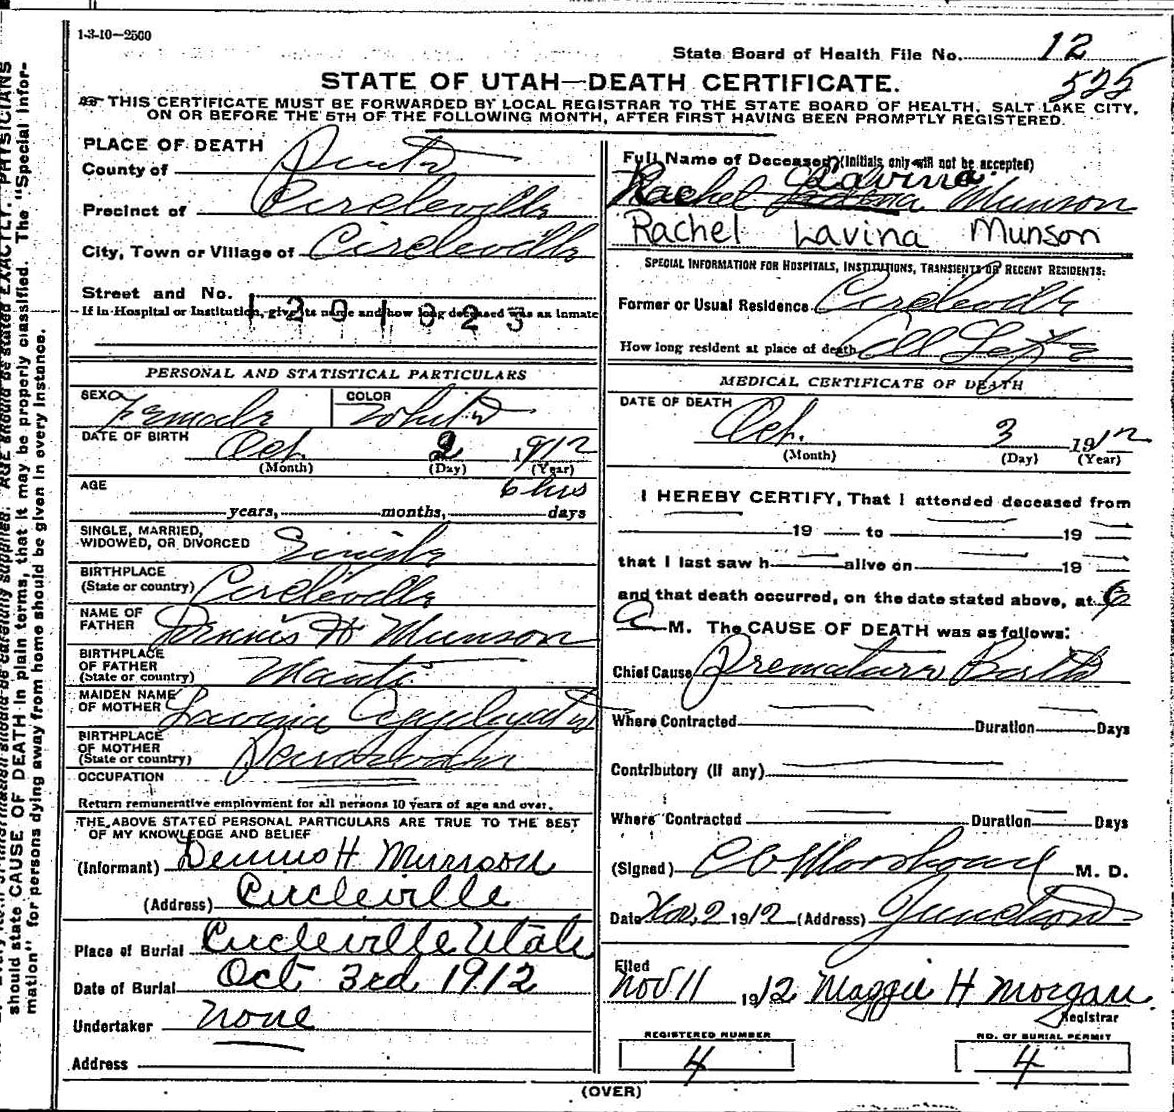 1-3-10-2500
State Board of Health File No. 12
525
STATE OF UTAH—DEATH CERTIFICATE.
THIS CERTIFICATE MUST BE FORWARDED BY LOCAL REGISTRAR TO THE STATE BOARD OF HEALTH, SALT LAKE CITY,
ON OR BEFORE THE 5TH OF THE FOLLOWING MONTH, AFTER FIRST HAVING BEEN PROMPTLY REGISTERED.
PLACE OF DEATH
County of
Precinct of Circleville
City, Town or Village of Circleville
Street and No.
1201023
If in Hospital or Institution, give its name and how long deceased was an inmate
PERSONAL AND STATISTICAL PARTICULARS
SEX Female COLOR White
DATE OF BIRTH Oct. 2 1912
(Month) (Day) (Year)
AGE 6 hrs
years, months, days
SINGLE, MARRIED,
WIDOWED, OR DIVORCED Single
BIRTHPLACE
(State or country) Circleville
NAME OF
FATHER Dennis H Munson
BIRTHPLACE
OF FATHER
(State or country) Manti
MAIDEN NAME
OF MOTHER Lavinia
BIRTHPLACE
OF MOTHER
(State or country)
OCCUPATION
Return remunerative employment for all persons 10 years of age and over.
THE ABOVE STATED PERSONAL PARTICULARS ARE TRUE TO THE BEST
OF MY KNOWLEDGE AND BELIEF
(Informant) Dennis H Munson
(Address) Circleville
Place of Burial Circleville Utah
Date of Burial Oct 3rd 1912
Undertaker none
Address
Full Name of Deceased (Initials only will not be accepted)
Lavina
Rachel Munson
Rachel Lavina Munson
SPECIAL INFORMATION FOR HOSPITALS, INSTITUTIONS, TRANSIENTS OR RECENT RESIDENTS:
Former or Usual Residence Circleville
How long resident at place of death All Life
MEDICAL CERTIFICATE OF DEATH
DATE OF DEATH
Oct. 3 1912
(Month) (Day) (Year)
I HEREBY CERTIFY, That I attended deceased from
19 to 19
that I last saw h alive on 19
and that death occurred, on the date stated above, at
a M. The CAUSE OF DEATH was as follows:
Chief Cause Premature Birth
Where Contracted Duration Days
Contributory (if any)
Where Contracted Duration Days
(Signed) M. D.
Date Nov, 2 1912 (Address) Junction
Filed
Nov 11 1912 Maggie H Morgan
Registrar
REGISTERED NUMBER
4
NO. OF BURIAL PERMIT
4
(OVER)
should state CAUSE OF DEATH in plain terms, that it may be properly classified. The "Special Infor-
mation" for persons dying away from home should be given in every instance.